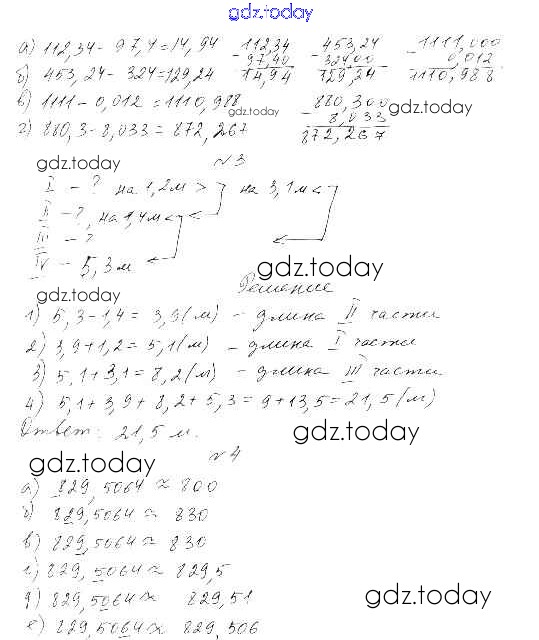 gdz.today
а) 112,34 - 97,4 = 14,94
б) 453,24 - 324 = 129,24
в) 1111 - 0,012 = 1110,988
г) 880,3 - 8,033 = 872,267
112,34
- 97,40
14,94
453,24
- 324,00
129,24
1111,000
- 0,012
1110,988
880,300
- 8,033
872,267
gdz.today
gdz.today
gdz.today
№3
I - ? на 1,2м > на 3,1м <
II - ?, на 1,4м <
III - ?
IV - 5,3м
gdz.today
gdz.today
Решение
1) 5,3 - 1,4 = 3,9 (м) - длина II части
2) 3,9 + 1,2 = 5,1 (м) - длина I части
3) 5,1 + 3,1 = 8,2 (м) - длина III части
4) 5,1 + 3,9 + 8,2 + 5,3 = 9 + 13,5 = 21,5 (м)
Ответ: 21,5 м.
gdz.today
gdz.today
№4
а) 829,5064 ≈ 800
б) 829,5064 ≈ 830
в) 829,5064 ≈ 830
г) 829,5064 ≈ 829,5
д) 829,5064 ≈ 829,51
е) 829,5064 ≈ 829,506
gdz.today